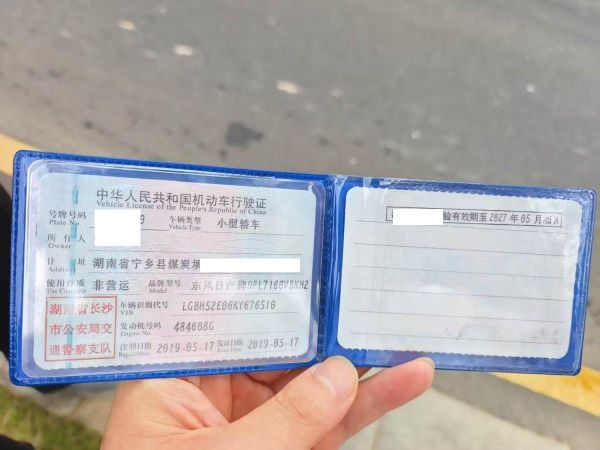 中华人民共和国机动车行驶证
Vehicle License of the People's Republic of China
号牌号码 9 车辆类型 小型轿车
Plate No. Vehicle Type
所有人
Owner
住址 湖南省宁乡县煤炭坝
Address
使用性质 非营运 品牌型号 东风日产牌
Use Character Model
湖南省长沙
市公安局交
通警察支队
车辆识别代号 LGBH52E06KY676510
VIN
发动机号码 484608G
Engine No.
注册日期 2019-05-17 发证日期 2019-05-17
Register Date Issue Date
验有效期至 2027年05月 A